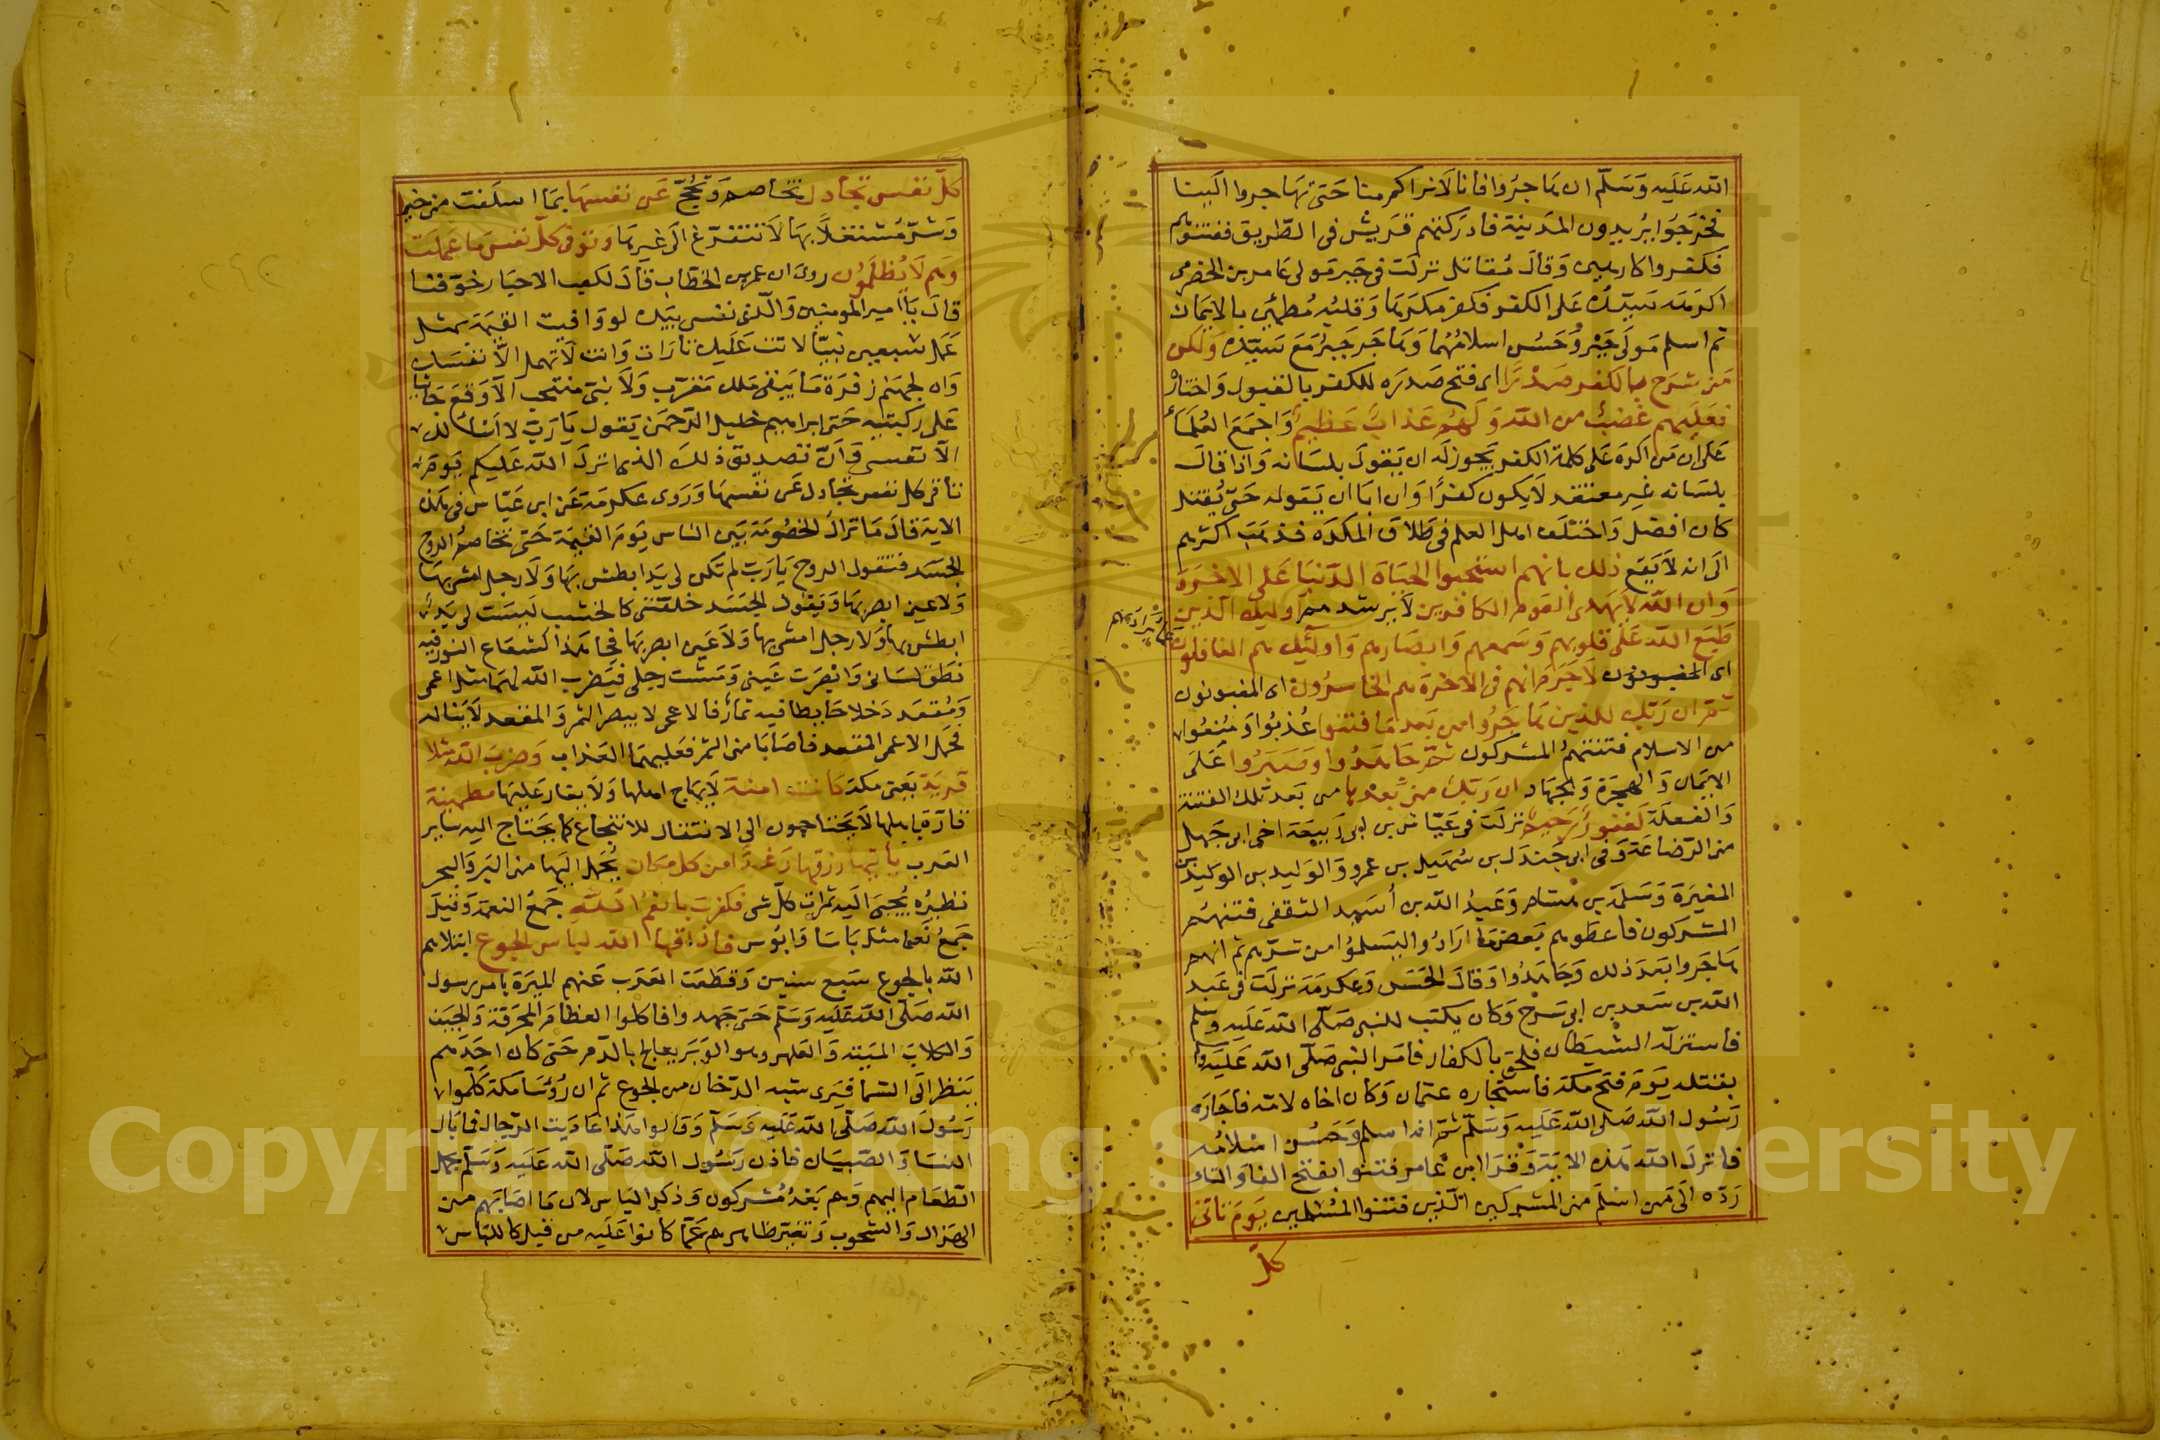 الله عليه وسلم ان هاجروا فانا لا نراكم منا حتى تهاجروا الينا
فخرجوا يريدون المدينة فادركتهم قريش فى الطريق ففتنوهم
فكفروا كارهين وقال مقاتل نزلت فى جبر مولى عامر بن الحضرمى
اكرهه سيّده على الكفر فكفر مكرها وقلبه مطمئن بالايمان
ثم اسلم مولى جبر وحسن اسلامهما وهاجر جبر مع سيّده ولكن
من شرح بالكفر صدرا اى فتح صدره للكفر بالقبول واختاره
فعليهم غضب من الله ولهم عذاب عظيم واجمع العلماء
على ان من اكره على كلمة الكفر يجوز له ان يقول بلسانه واذا قال
بلسانه غير معتقد لا يكون كفرا وان ابا ان يقوله حتى يقتل
كان افضل واختلف اهل العلم فى طلاق المكره فذهب اكثرهم
الى انه لا يقع ذلك بانهم استحبوا الحياة الدنيا على الاخرة
وان الله لا يهدى القوم الكافرين لا يرشدهم اوليك الذين
طبع الله على قلوبهم وسمعهم وابصارهم واوليك هم الغافلون
عما يراد بهم
اى المغبونون لا جرم انهم فى الاخرة هم الخاسرون اى المغبونون
ثم ان ربك للذين هاجروا من بعد ما فتنوا عذبوا ومنعوا
من الاسلام فتنتهم المشركون ثم جاهدوا وصبروا على
الايمان والهجرة والجهاد ان ربك من بعدها من بعد تلك الفتنة
والفعلة لغفور رحيم نزلت فى عياش بن ابى ربيعة اخى ابى جهل
من الرضاعة وفى ابى جندل بن سهيل بن عمرو والوليد بن الوليد بن
المغيرة وسلمة بن هشام وعبد الله بن أسيد الثقفى فتنهم
المشركون فاعطوهم بعض ما ارادوا ليسلموا من شرهم ثم انهم
هاجروا بعد ذلك وجاهدوا وقال الحسن وعكرمة نزلت فى عبد
الله بن سعد بن ابى سرح وكان يكتب للنبى صلى الله عليه وسلم
فاستزله الشيطان فلحق بالكفار فامر النبى صلى الله عليه وسلم
بقتله يوم فتح مكة فاستجاره عثمان وكان اخاه لامه فاجاره
رسول الله صلى الله عليه وسلم ثم انه اسلم وحسن اسلامه
فانزل الله هذه الاية وقرا ابن عامر فتنوا بفتح الفا والتاء
رده الى من اسلم من المشركين الذين فتنوا المسلمين يوم تاتى
كل
كل نفس تجادل تخاصم وتحج عن نفسها بما اسلفت من خير
وشر مشتغلا بها لا تتفرغ الى غيرها وتوفى كل نفس ما عملت
وهم لا يظلمون روى ان عمر بن الخطاب قال لكعب الاحبار خوفنا
قال يا امير المومنين والذى نفسى بيده لو وافيت القيمة بمثل
عمل سبعين نبيا لاتت عليك تارات وانت لا تهمك الا نفسك
وان لجهنم زفرة ما يبقى ملك مقرب ولا نبى منتخب الا وقع جاثيا
على ركبتيه حتى ابراهيم خليل الرحمن يقول يا رب لا اسالك
الا نفسى وان تصديق ذلك الذى انزل الله عليكم يوم
تاتى كل نفس تجادل عن نفسها وروى عكرمة عن ابن عباس فى هذه
الاية قال ما تزال الخصومة بين الناس يوم القيمة حتى تخاصم الروح
الجسد فتقول الروح يا رب لم تكن لى يد ابطش بها ولا رجل امشى بها
ولا عين ابصر بها ويقول الجسد خلقتنى كالخشب ليست لى يد
ابطش بها ولا رجل امشى بها ولا عين ابصر بها فجا هذا كشعاع النور فبه
نطق لسانى وابصرت عينى ومشت رجلى فيضرب الله لهما مثلا اعمى
ومقعد دخلا حايطا فيه ثمار فالاعمى لا يبصر الثمر والمقعد لا يناله
فحمل الاعمى المقعد فاصابا من الثمر فعليهما العذاب وضرب الله مثلا
قرية يعنى مكة كانت امنة لا يهاج اهلها ولا يغار عليها مطمينة
قارة باهلها لا يحتاجون الى الانتقال للانتجاع كما يحتاج اليه ساير
العرب ياتيها رزقها رغدا من كل مكان يحمل اليها من البر والبحر
نظيره يجبى اليه ثمرات كل شى فكفرت بانعم الله جمع النعمة وقيل
جمع نعما مثل باسا وابوس فاذاقها الله لباس الجوع ابتلاهم
الله بالجوع سبع سنين وقطعت العرب عنهم الميرة بامر رسول
الله صلى الله عليه وسلم حتى جهدوا فاكلوا العظام المحرقة والجيف
والكلاب الميتة والعلهز وهو الوبر يعالج بالدم حتى كان احدهم
ينظر الى السما فيرى شبه الدخان من الجوع ثم ان رؤسا مكة كلموا
رسول الله صلى الله عليه وسلم وقالوا هذا عاديت الرجال فما بال
النسا والصبيان فاذن رسول الله صلى الله عليه وسلم بحمل
الطعام اليهم وهم بعد مشركون وذكر اللباس لان ما اصابهم من
الهزال والشحوب وتغير ظاهرهم عما كانوا عليه من قبل كاللباس
Copyright © King Saud University